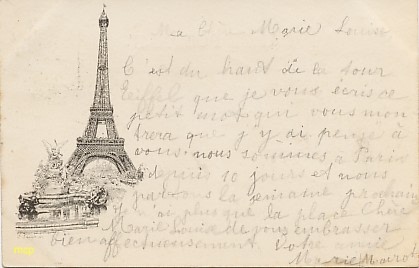 Ma Chère Marie Louise
C'est du haut de la tour
Eiffel que je vous écris ce
petit mot qui vous mon-
trera que j'y ai pensé à
vous. nous sommes a Paris
depuis 10 jours et nous
partons la semaine prochaine
je n'ai plus que la place Chère
Marie Louise de vous embrasser
bien affectueusement. Votre amie
Marie